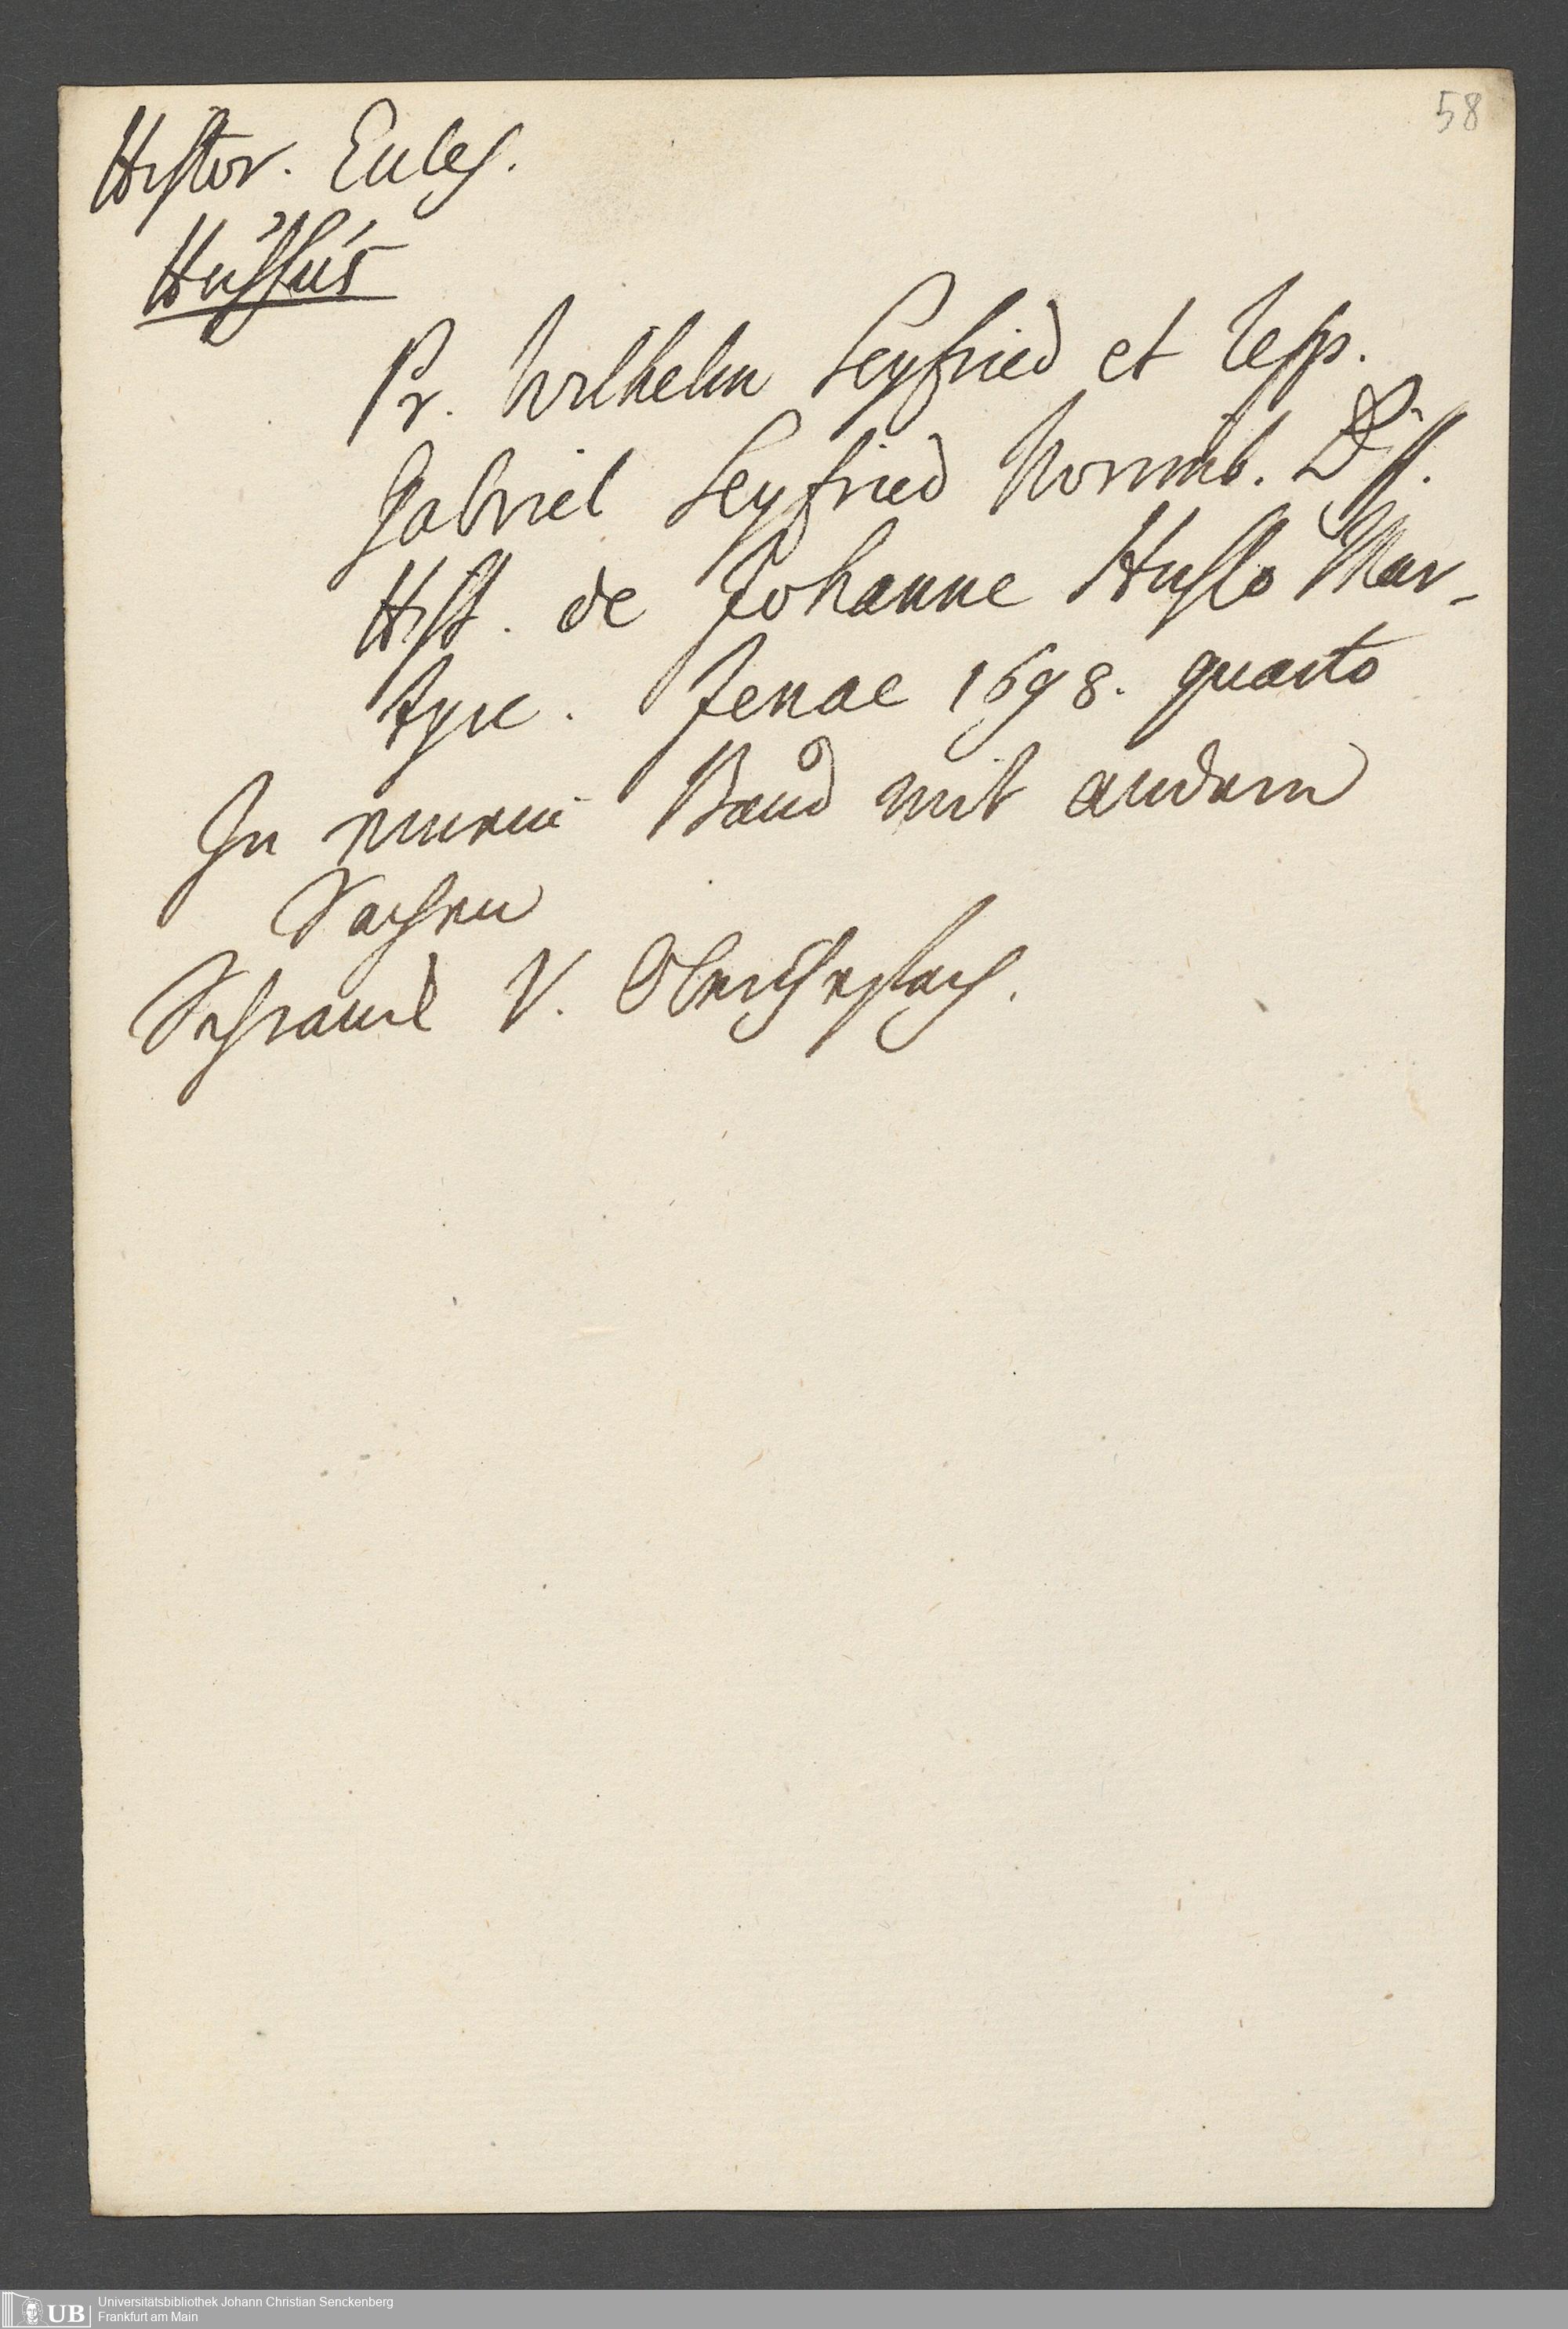 58
Histor. Eccles.
Hussus
Pr. Wilhelm Seyfried et Resp.
Gabriel Seyfried Norimb. Diss.
Hist. de Johanne Husso Mar-
tyre. Jenae 1698. quarto
In einem Band mit andern
Sachen
Schranck V. Oberstes Fach.
UB Universitätsbibliothek Johann Christian Senckenberg
Frankfurt am Main